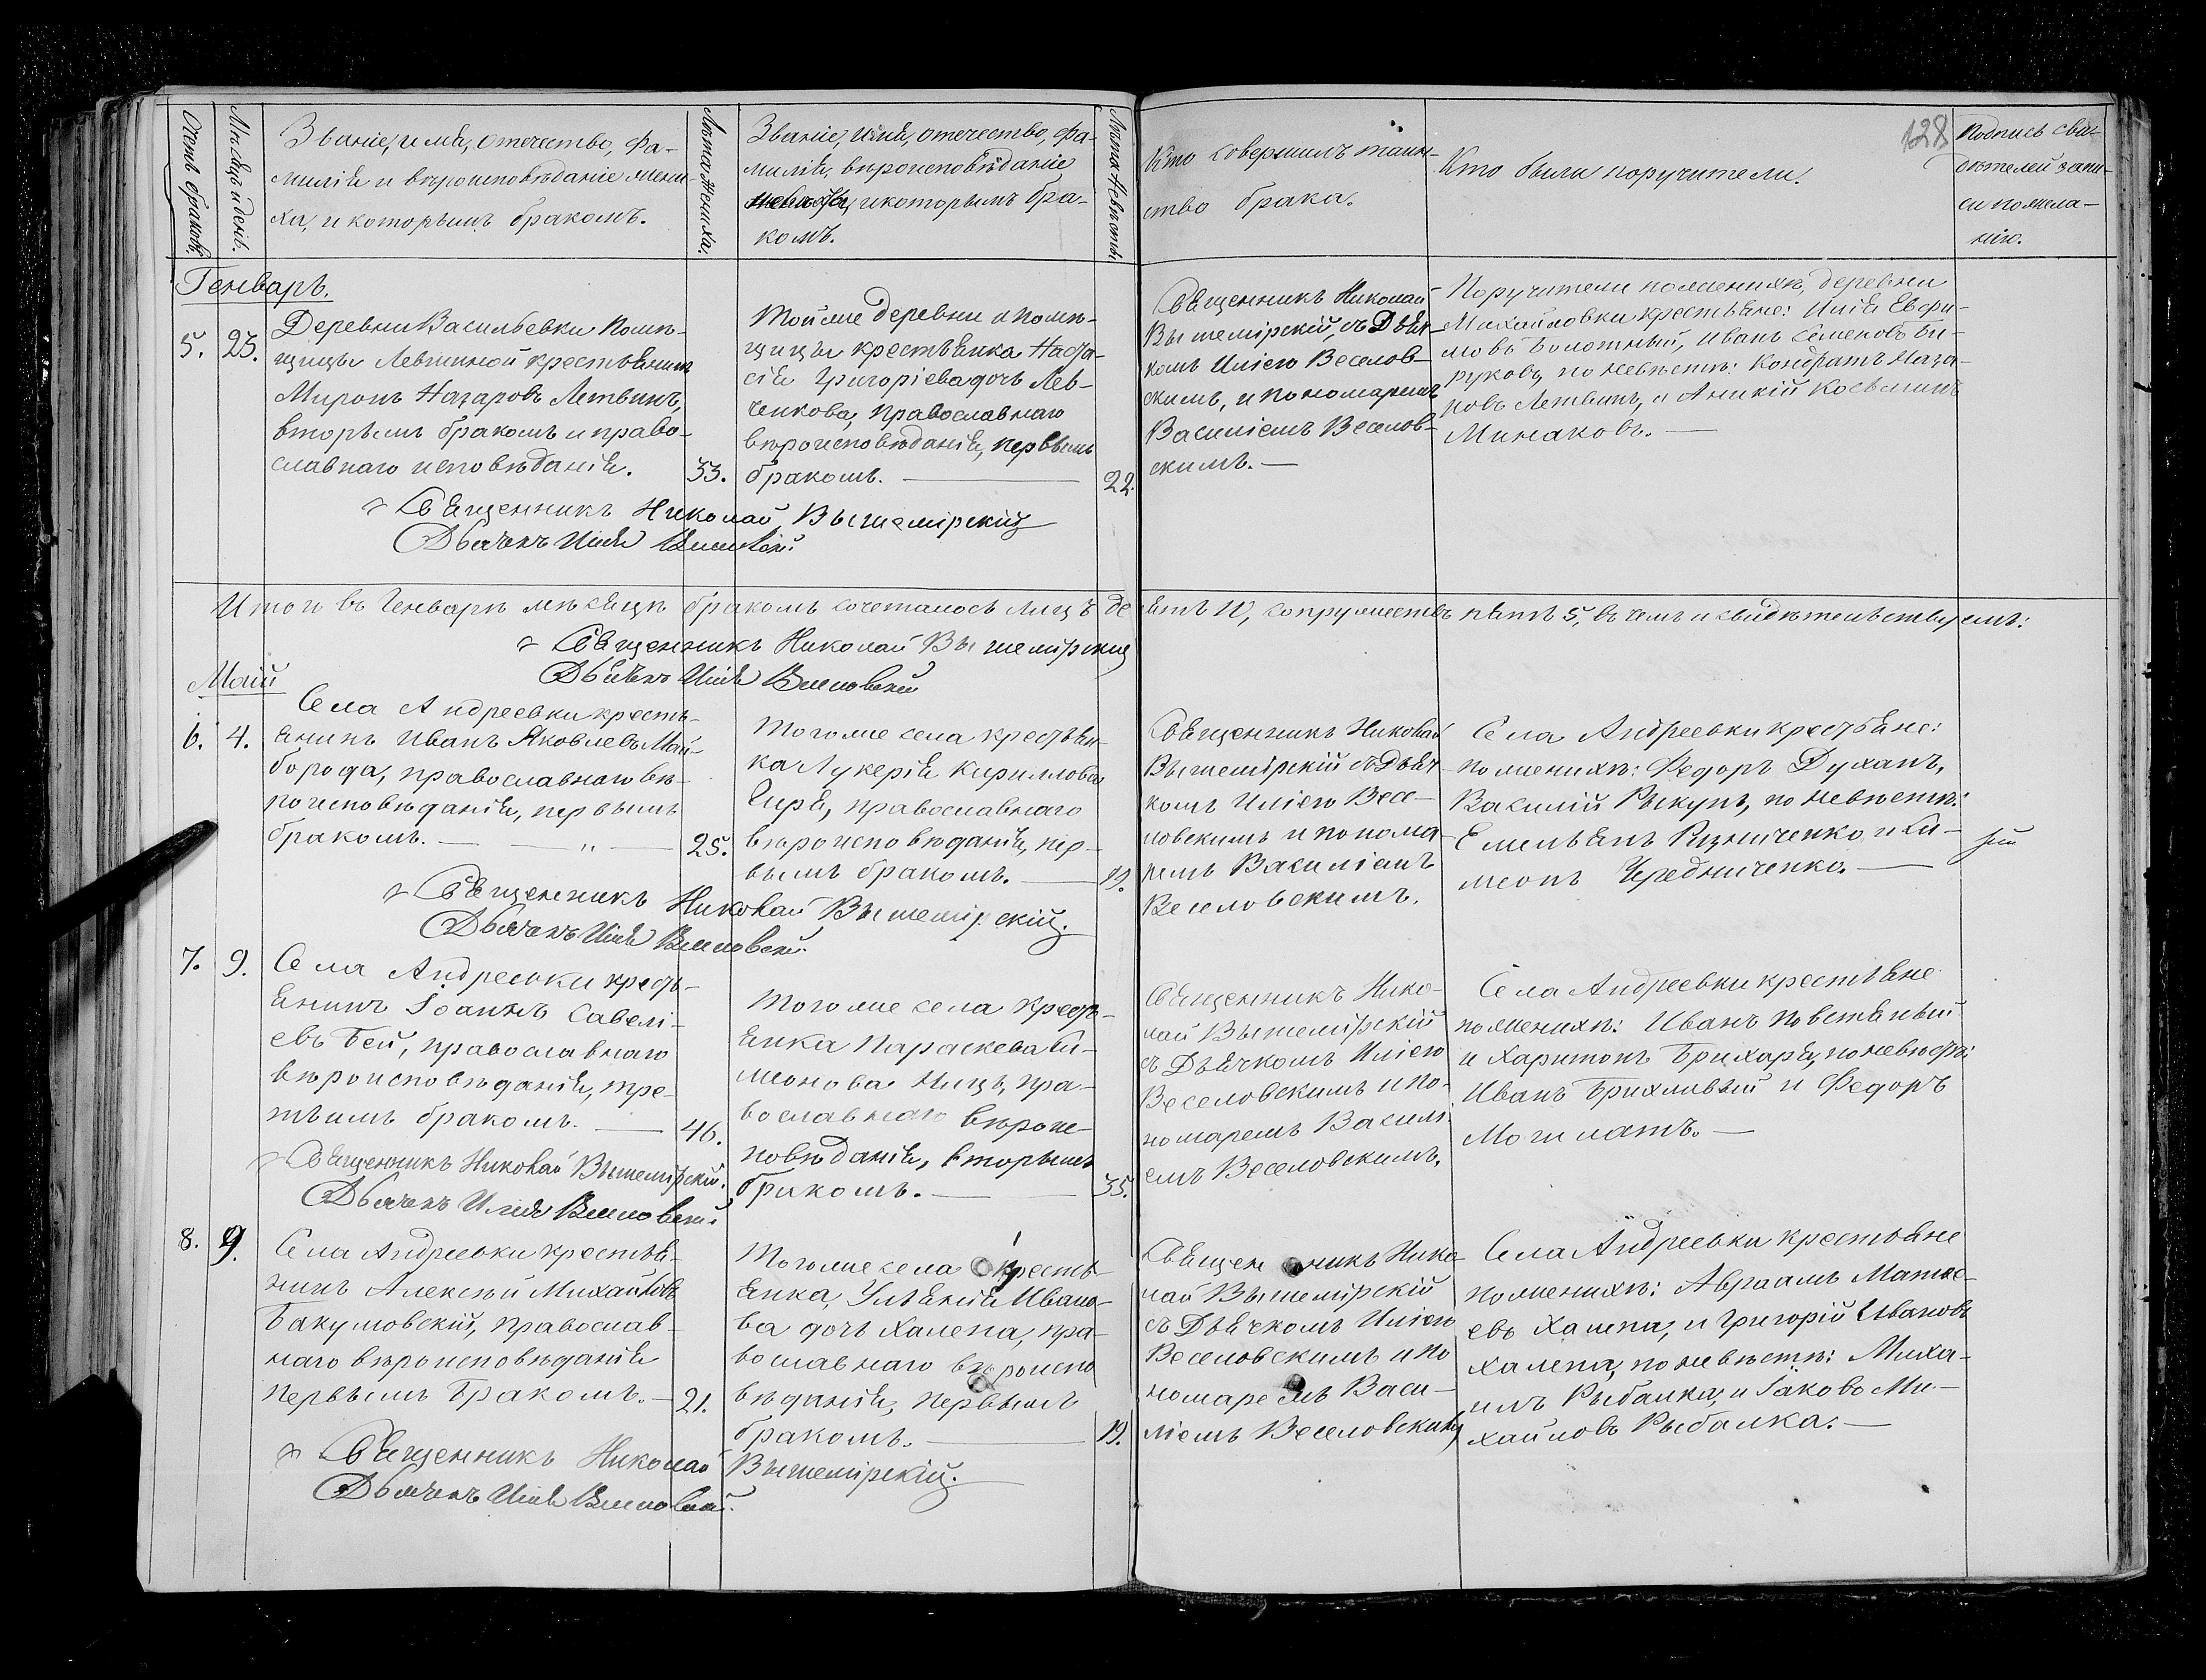 128
Счетъ браковъ.
Мѣсяцъ и день.
Званіе, имя, отчество, фа-
милія и вѣроисповѣданіе жени-
ха, и которымъ бракомъ.
Лѣта жениха.
Званіе, имя, отчество, фа-
милія, вѣроисповѣданіе
невѣсты, и которымъ бра-
комъ.
Лѣта Невѣсты.
Кто совершилъ таин-
ство брака.
Кто были поручители.
Подпись сви-
дѣтелей запи-
си по жела-
нію.
Генварь.
5. 23.
Деревни Васильевки Помѣ-
щицы Левшиной крестьянинъ
Миронъ Назаровъ Летвинъ,
вторымъ бракомъ и право-
славнаго исповѣданія.
33.
Тойже деревни и помѣ-
щицы крестьянка Наста-
сія Григоріева дочь Лев-
ченкова, православнаго
вѣроисповѣданія, первымъ
бракомъ.
22.
Священникъ Николай
Вышемірскій, съ Дьяч-
комъ Иліею Веселов-
скимъ, и пономаремъ
Василіемъ Веселов-
скимъ.
Поручители по женихѣ, деревни
Михайловки крестьяне: Илія Евфи-
мовъ Болотный, Иванъ Семеновъ Би-
рюковъ, по невѣстѣ: Кондратъ Наза-
ровъ Летвинъ, и Аникій Косьминъ
Минаковъ.
Священникъ Николай Вышемірскій
Дьячекъ Илія Веселовскій.
Итого въ Генварѣ мѣсяцѣ бракомъ сочеталось лицъ де
сять 10, супружествъ пять 5, въ чемъ и свидѣтельствуемъ:
Священникъ Николай Вышемірскій
Дьячекъ Илія Веселовскій
Маій
6. 4.
Села Андреевки кресть-
янинъ Иванъ Яковлевъ Май-
борода, православнаго вѣ-
роисповѣданія, первымъ
бракомъ. „
25.
Тогоже села крестьян-
ка Лукерія Кириллова
Сиря, православнаго
вѣроисповѣданія, пер-
вымъ бракомъ.
19.
Священникъ Николай
Вышемірскій съ Дьяч
комъ Иліею Весе-
ловскимъ и понома-
ремъ Василіемъ
Веселовскимъ.
Села Андреевки крестьяне:
по женихѣ: Федоръ Духанъ,
Василій Рыкунъ, по невѣстѣ:
Емельянъ Ризниченко и Си-
меонъ Чередниченко.
Священникъ Николай Вышемірскій.
Дьячекъ Илія Веселовскій.
7. 9.
Села Андреевки кресть-
янинъ Іоаннъ Савелі-
евъ Бей, православнаго
вѣроисповѣданія, тре-
тьимъ бракомъ.
46.
Тогоже села кресть-
янка Параскева Си-
меонова Ницъ, пра-
вославнаго вѣроис-
повѣданія, вторымъ
бракомъ.
35.
Священникъ Нико-
лай Вышемірскій
съ Дьячкомъ Иліею
Веселовскимъ и по-
номаремъ Василі-
емъ Веселовскимъ.
Села Андреевки крестьяне
по женихѣ: Иванъ Повстяный
и Харитонъ Брихаря, по невѣстѣ:
Иванъ Брихливый и Федоръ
Могилатъ.
Священникъ Николай Вышемірскій.
Дьячекъ Илія Веселовскій
8. 9.
Села Андреевки крестья-
нинъ Алексѣй Михайловъ
Бакумовскій, православ-
наго вѣроисповѣданія
первымъ бракомъ.
21.
Тогоже села кресть-
янка, Ульянія Ивано-
ва дочь Халепа, пра-
вославнаго вѣроиспо
вѣданія, первымъ
бракомъ.
19.
Священникъ Нико-
лай Вышемірскій
съ Дьячкомъ Иліею
Веселовскимъ и по
номаремъ Васи-
ліемъ Веселовскимъ
Села Андреевки крестьяне
по женихѣ: Авраамъ Матве-
евъ Халепа, и Григорій Ивановъ
Халепа, по невѣстѣ: Миха-
илъ Рыбалка, и Іаковъ Ми-
хайловъ Рыбалка.
Священникъ Николай Вышемірскій.
Дьячекъ Илія Веселовскій.